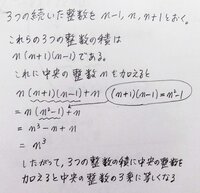 3つの続いた整数を n-1, n, n+1 とおく。
これらの3つの整数の積は
n(n+1)(n-1) である。
これに中央の整数 n を加えると
n(n+1)(n-1)+n
(n+1)(n-1)=n²-1
= n(n²-1)+n
= n³-n+n
= n³
したがって, 3つの整数の積に中央の整数を
加えると中央の整数の3乗に等しくなる